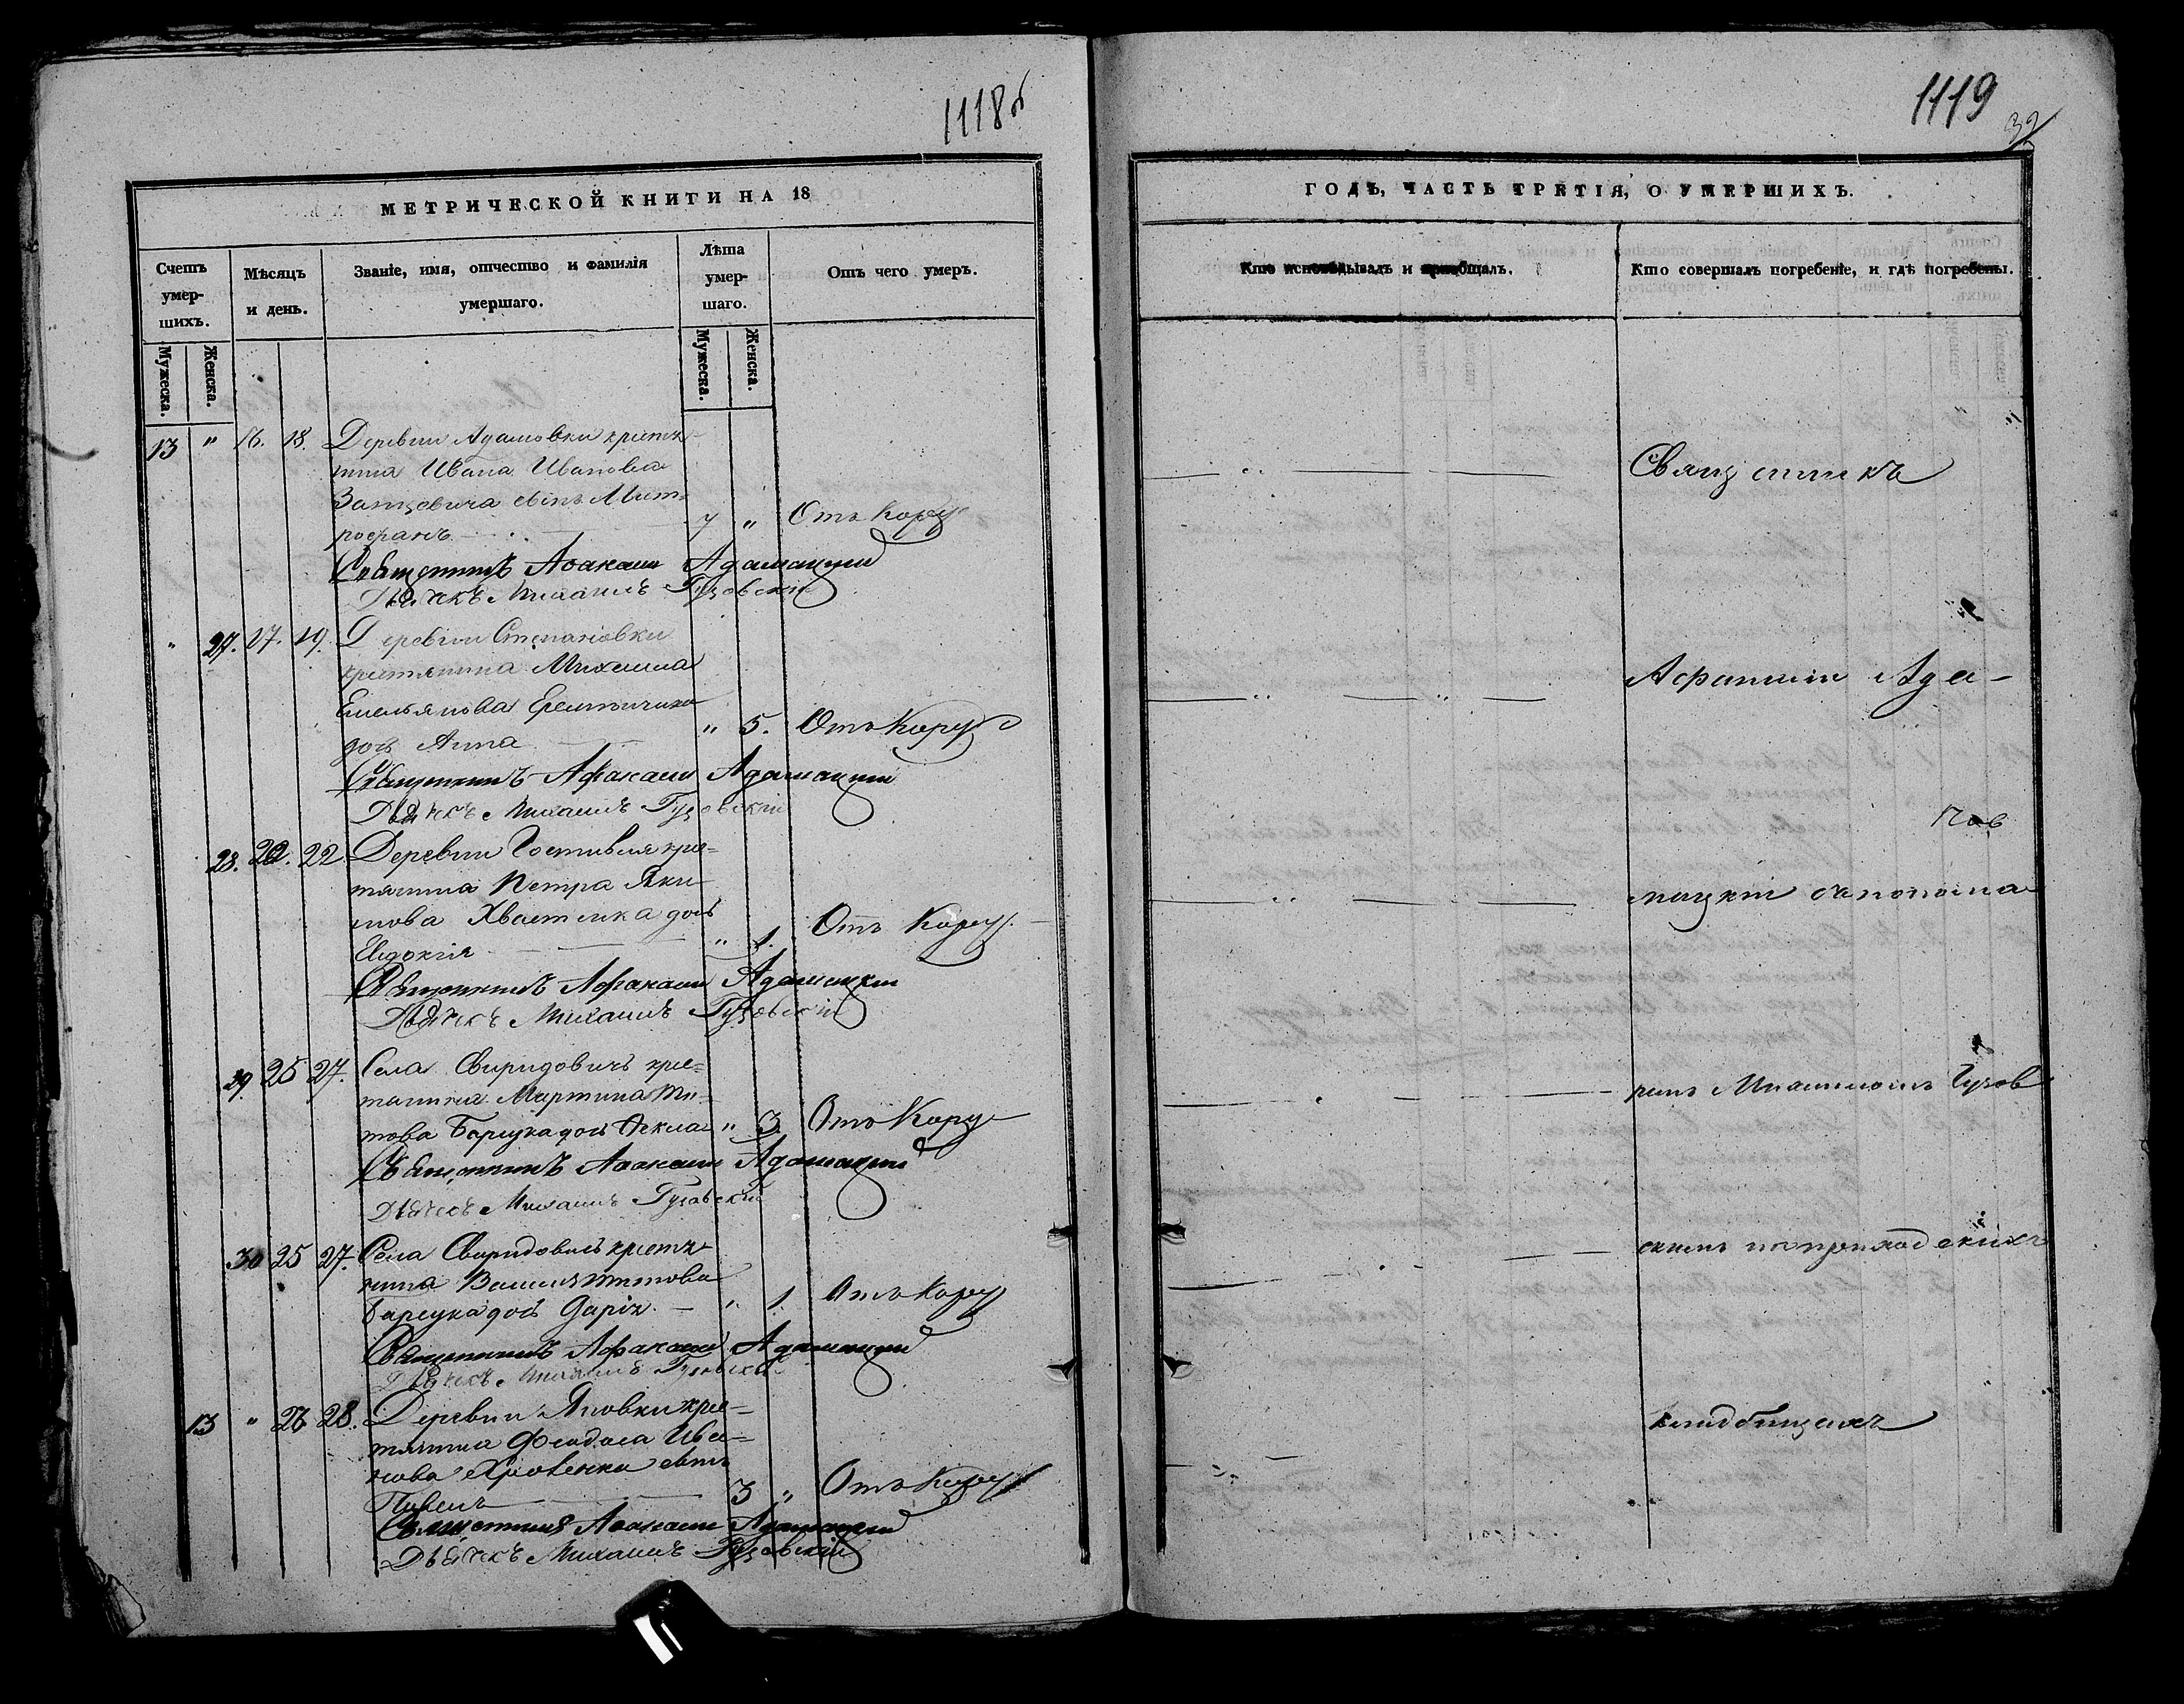 1118 об
МЕТРИЧЕСКОЙ КНИГИ НА 18
Счетъ умер-шихъ.
Мужеска.
Женска.
Мѣсяцъ и день.
Званіе, имя, отчество и фамилія умершаго.
Лѣта умер-шаго.
Мужеска.
Женска.
Отъ чего умеръ.
13 " 16. 18. Деревни Адамовки крестя-
нина Ивана Иванова
сынъ Мит-
рофанъ 7 " Отъ Кору
Священникъ Афанасій Адамацкій
Дьячекъ Михаилъ Гузовскій
" 27. 17. 19. Деревни Степановки
крестянина Михаила
Емельянова
дочь Анна " 5. Отъ Кору
Священникъ Афанасій Адамацкій
Дьячекъ Михаилъ Гузовскій
28. 20. 22 Деревни Гостивля кре-
тянина Петра Яки-
мова Хвастюка дочь
Евдокія " 1. Отъ Кору
Священникъ Афанасій Адамацкій
Дьячекъ Михаилъ Гузовскій
29. 25 27. Села Свиридовичъ крес-
тянина Мартина Ти-
това Барсука дочь Фекла " 3 Отъ Кору
Священникъ Афанасій Адамацкій
Дьячекъ Михаилъ Гузовскій
30 25 27. Села Свиридовичъ крестя-
нина Василія Титова
Барсука дочь Дарія " 1. Отъ Кору
Священникъ Афанасій Адамацкій
Дьячекъ Михаилъ Гузовскій
13 " 26 28. Деревни Яновки крес-
тянина Феодоса Ива-
нова сынъ
Павелъ 3 " Отъ Кору
Священникъ Афанасій Адамацкій
Дьячекъ Михаилъ Гузовскій
1119
32
ГОДЪ, ЧАСТЬ ТРЕТІЯ, О УМЕРШИХЪ.
Кто исповѣдывалъ и приобщалъ.
Кто совершалъ погребеніе, и гдѣ погребены.
Священникъ
Афанасій Ада-
мацкій съ понома-
ремъ Михаиломъ Гузов
скимъ на приходскихъ
кладбищахъ